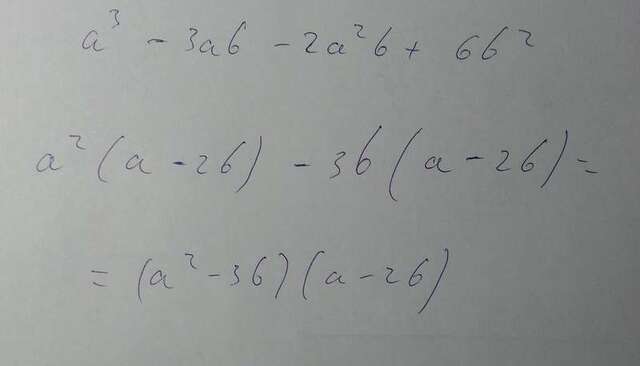 a³ - 3ab - 2a²b + 6b²
a²(a - 2b) - 3b(a - 2b) =
= (a² - 3b)(a - 2b)